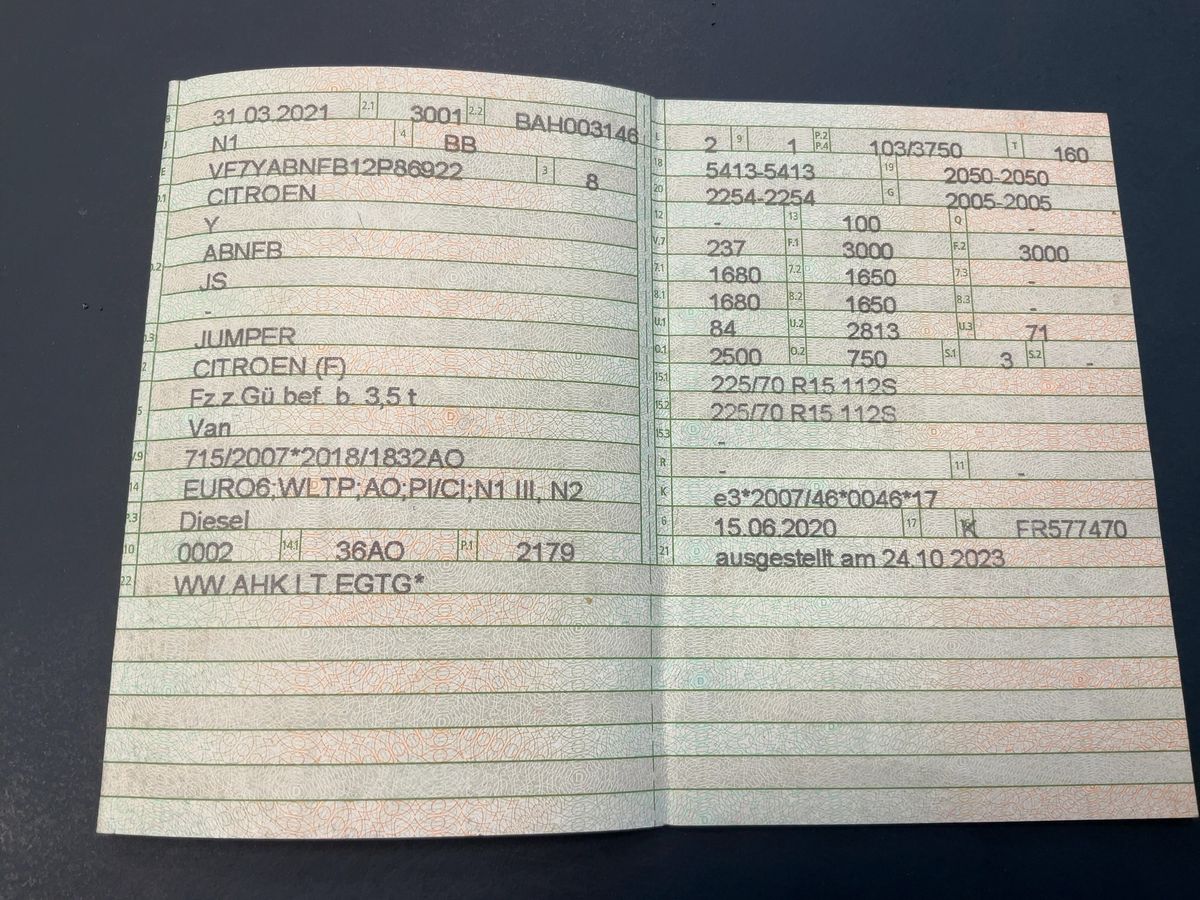 B 31.03.2021 2.1 3001 2.2 BAH003146
J N1 4 BB
E VF7YABNFB12P86922 3 8
D.1 CITROEN
Y
D.2 ABNFB
JS
-
D.3 JUMPER
2 CITROEN (F)
Fz.z.Gü bef. b. 3,5 t
5 Van
V.9 715/2007*2018/1832AO
14 EURO6;WLTP;AO;PI/CI;N1 III, N2
P.3 Diesel
10 0002 14.1 36AO P.1 2179
22 WW.AHK LT.EGTG*
L 2 9 1 P.2 P.4 103/3750 T 160
18 5413-5413 19 2050-2050
20 2254-2254 G 2005-2005
12 - 13 100 Q -
V.7 237 F.1 3000 F.2 3000
7.1 1680 7.2 1650 7.3 -
8.1 1680 8.2 1650 8.3 -
U.1 84 U.2 2813 U.3 71
O.1 2500 O.2 750 S.1 3 S.2 -
15.1 225/70 R15 112S
15.2 225/70 R15 112S
15.3 -
R - 11 -
K e3*2007/46*0046*17
6 15.06.2020 17 K FR577470
21 ausgestellt am 24.10.2023